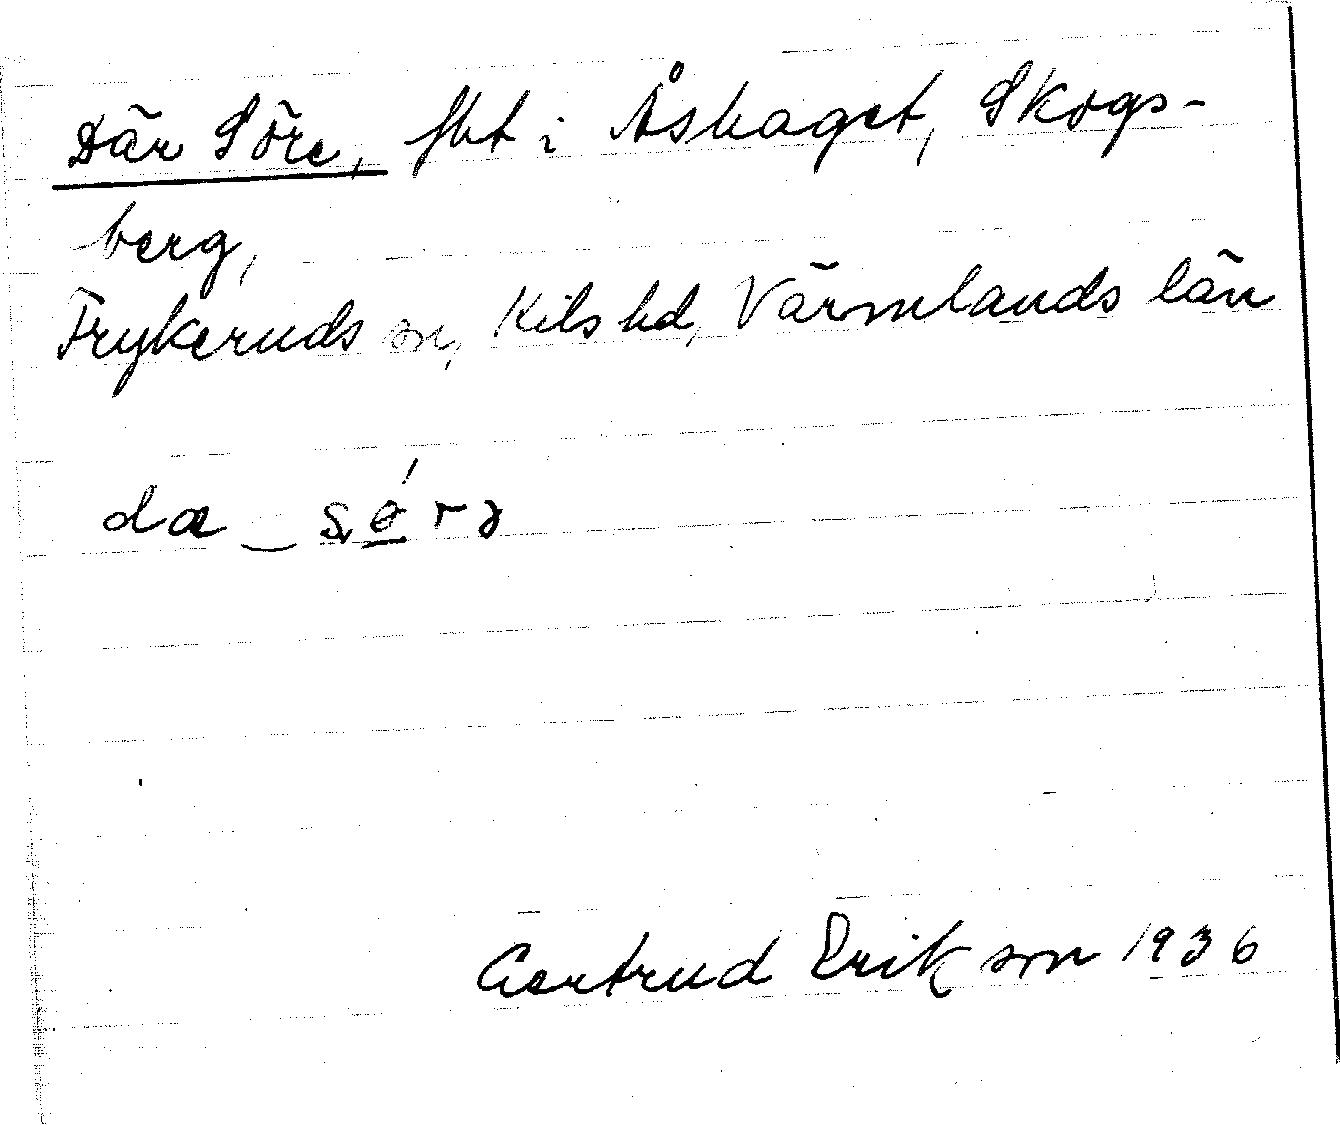 Där Söre, fbt i Åshaget, Skogs-
berg,
Frykeruds sn, Kils hd, Värmlands län
da_
Gertrud Erikson 1936